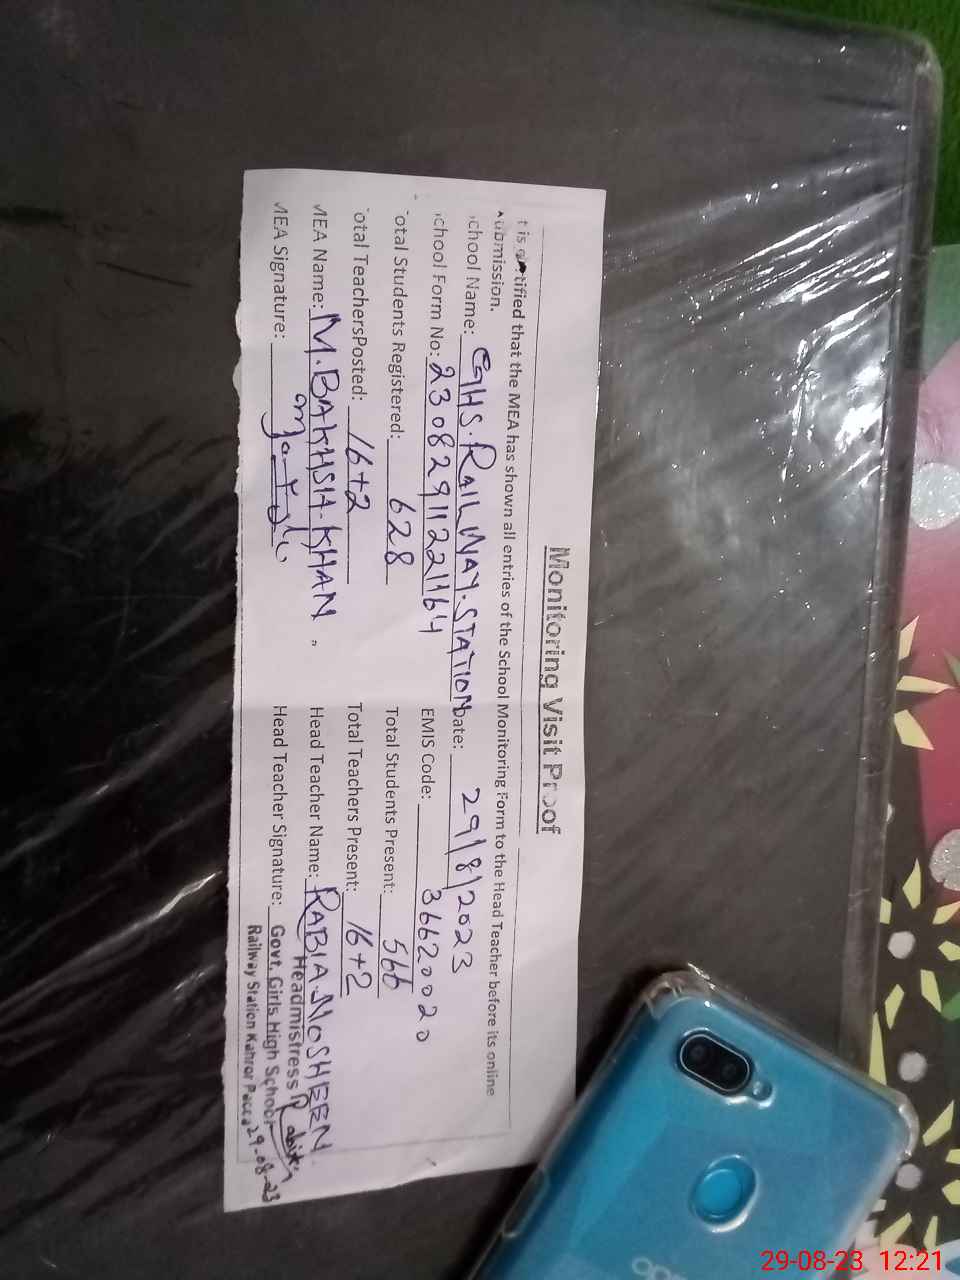 Monitoring Visit Proof
t is certified that the MEA has shown all entries of the School Monitoring Form to the Head Teacher before its online
submission.
chool Name: GHS. RAILWAY. STATION Date: 29/8/2023
chool Form No: 23082911221164 EMIS Code: 36620020
otal Students Registered: 628 Total Students Present: 566
otal TeachersPosted: 16+2 Total Teachers Present: 16+2
MEA Name: M. BAKHSH. KHAN. Head Teacher Name: RABIA. NOSHEEN.
MEA Signature: Head Teacher Signature:
Headmistress
Govt. Girls High School
Railway Station Kahror Pacca 29-08-23
oppo
29-08-23 12:21